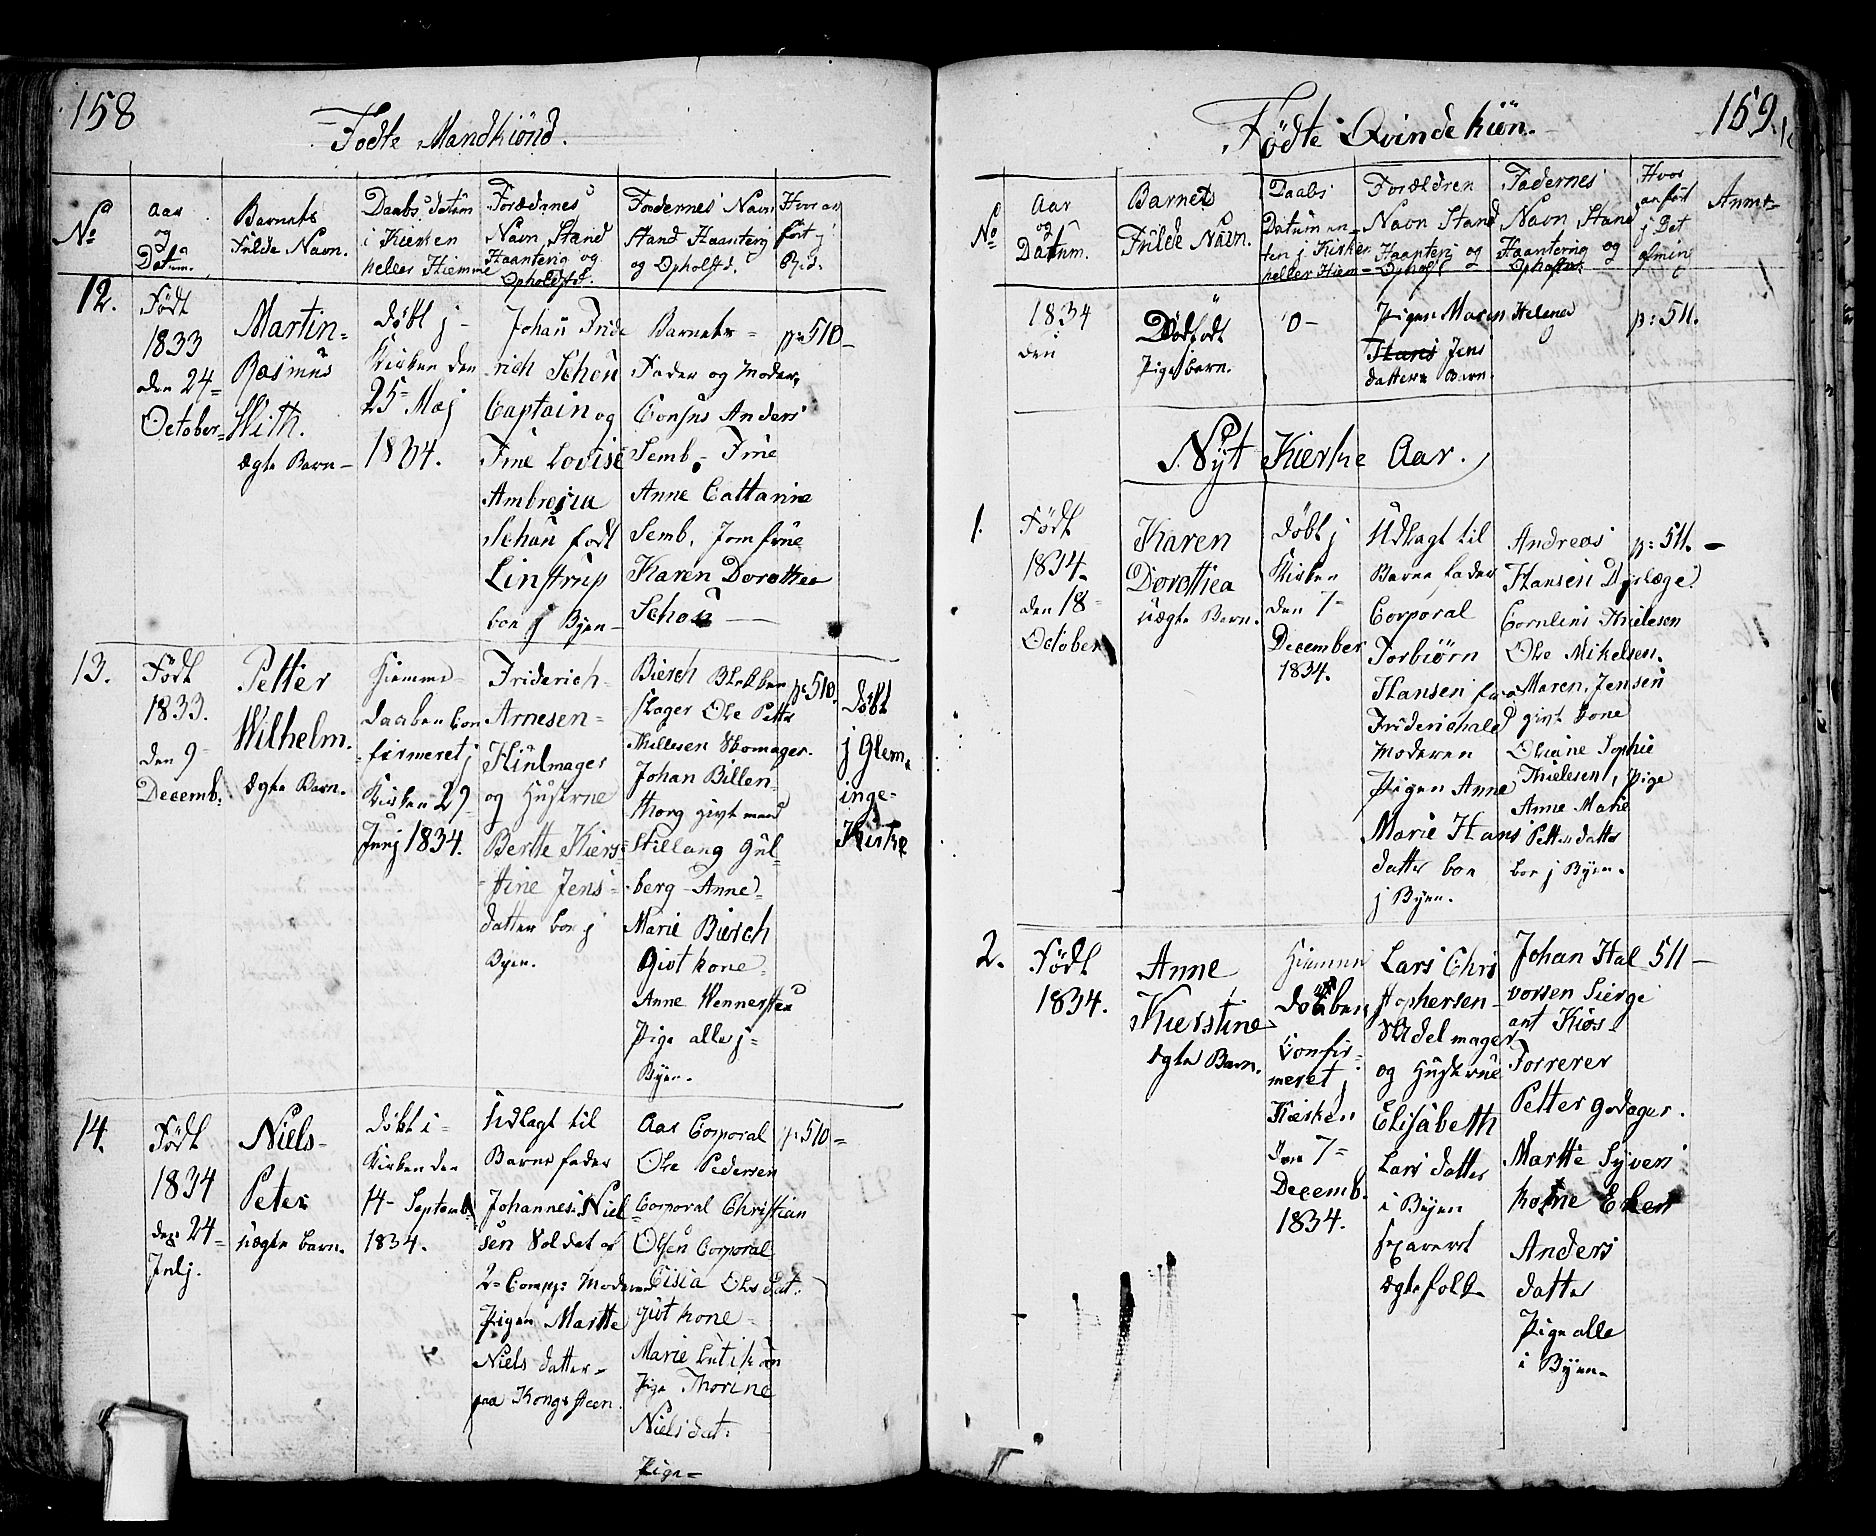 158
Fodte Mandkiönd.
No
Aar
og
Datum.
Barnets
fulde Navn.
Daabs datum
i Kirken
heller Hiemme
Forædernes
Navn Stand
Haantering og
Opholdstd.
Faddernes Navn
Stand Haantering
og Opholstd.
12.
Født
1833
den 24-
October-
Martin-
Rasmus
With.
Ægte Barn-
Døbt j-
Kirken den
25- Maj
1834.
Johan Fride
rich Schou
Captain og
Frue Lovise
Ambrosia
Schou født
Linstrup
boe j Byen-
Barnets-
Fader og Moder,
Consus Anders
Semb,- Frue
Anne Cattarine
Semb, Jomfrue
Karen Dorothea
Schou
p:510-
13.
Født
1833.
den 9-
Decemb.
Petter
Wilhelm.
Ægte Barn.
Hiemme-
daaben Con
firmeret j
Kirken 29-
Junj 1834.
Friderich-
Arnesen-
Hiulmager
og Hustrue
Berthe Kiers-
tine Jens-
datter boe j
Byen.
Biersch Blokker
mager Ole Petter
Skomager.
Johan Billen-
thorg givt mand
Stillang Gul-
berg- Anne
Marie Biersch
Givt kone-
Anne
Pige alle j-
Byen.
p:510.
døbt
j Glem,
inge-
Kirke
14.
Født
1834
den 24-
Julj.
Niels-
Peter
uægte barn.
døbt i-
Kirken den
14- Septemb.
1834.
Udlagt til
Barne fader
Johannes Niel-
sen Soldat af
2- Comp: Moderen
Pigen Marthe
Niels datter-
paa Kongsteen.
Aas Corporal
Ole Pedersen
Corporal Christian
Olsen Corporal
Cisia Olsdat:
givt kone-
Marie
Pige Thorine
Nielsdat:
Pige-
p:510-
159.
Födte Qvindekiön.
No
Aar
og
Datum.
Barnets
Fulde Navn.
Daabs
Datum en-
ten j Kirken
heller Hiem-
Forældren
Navn Stand
Haantering og
Fadernes
Navn Stand
Haantering og
Hvor
anført
j Det
Anm-
1834
den
Dødfødt
Pigebarn.
0-
Pigen Maren Helena
Hans Jens
datters Barn.
p:511.
Nyt Kierke Aar.
1.
Født
1834-
den 18-
October
Karen
Dorothea
uægte Barn.
døbt j
Kirken
den 7-
December
1834.
Udlagt til
Barne fader
Corporal
Torbiørn
Hansen fra
Friderichald
Moderen
Pigen Anne
Marie Hans
datter boe
j Byen.
Andreas
Hansen Dyrlæge
Cornlius Thielesen
Ole Mikelsen.
Maren Jensen
givt kone
Oliane Sophie
Thielesen, Pige
Anne Marie
Petters datter
boe j Byen.
p:511.-
2.
Født
1834.
Anne
Kierstine
Ægte Barn.
Hiemme
døbben
Confir-
meret j
Kierken
den 7-
Decemb.
1834.
Lars Chri
stophersen-
Sadelmager
og Hustrue
Elisabeth
Lars datter
i Byen
Ægtefolk
Johan Hal
vorsen Sierge
ant Kiøs-
Torrerer
Petter godager.
Marthe Syvers
kone
Anders
datter
Pige alle
i Byen-
511-